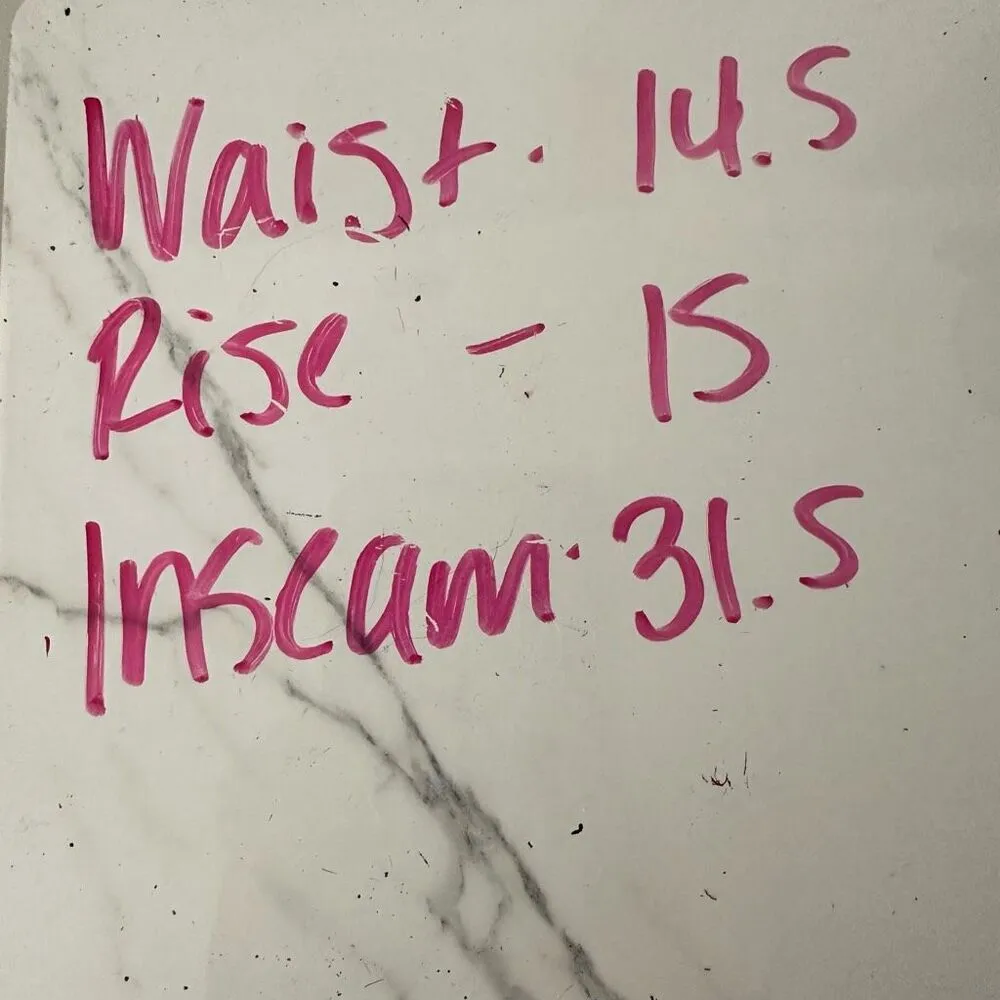 Waist. 14.5
Rise - 15
Inseam. 31.5